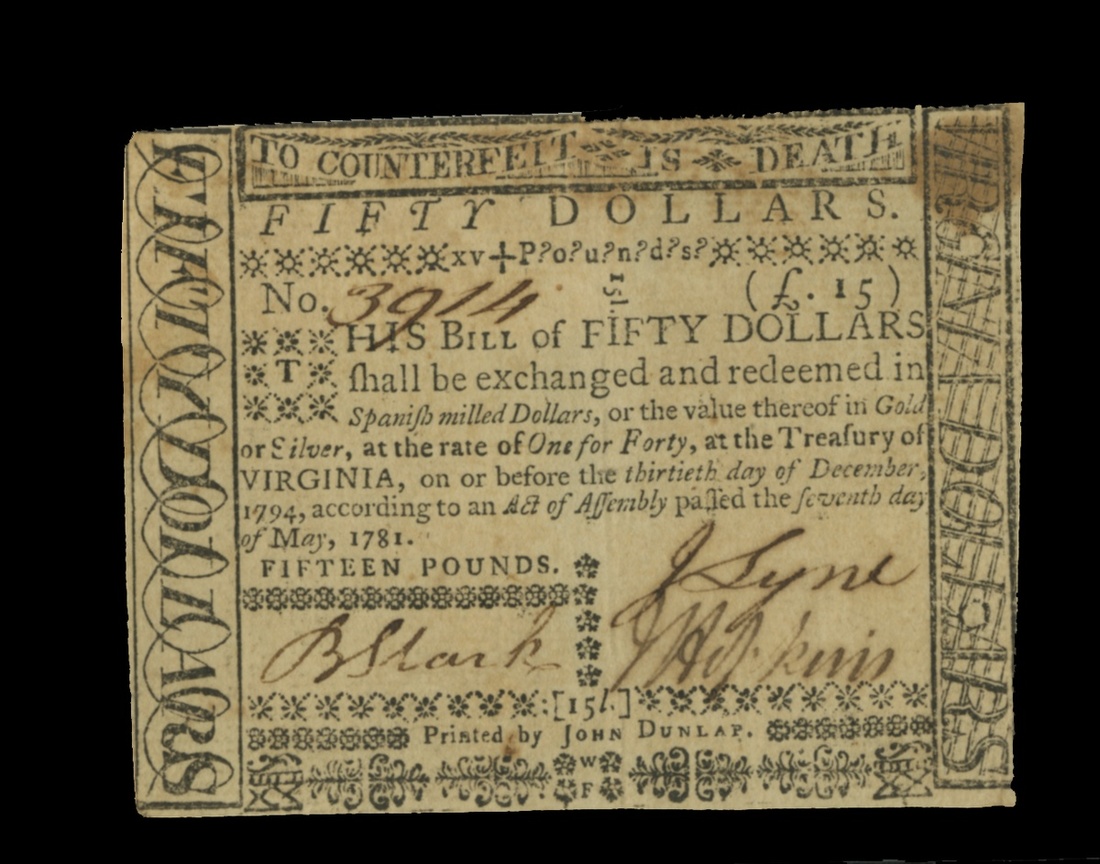 TO COUNTERFEIT IS DEATH
FIFTY DOLLARS.
xv P?o?u?n?d?s?
No. 3914 (£. 15)
THIS BILL of FIFTY DOLLARS
ſhall be exchanged and redeemed in
Spaniſh milled Dollars, or the value thereof in Gold
or Silver, at the rate of One for Forty, at the Treaſury of
VIRGINIA, on or before the thirtieth day of December,
1794, according to an Act of Aſſembly paſſed the ſeventh day
of May, 1781.
FIFTEEN POUNDS.
J Lyne
B Stark
J Hopkins
:[15l.]
Printed by JOHN DUNLAP.
W
F
FIFTY DOLLARS